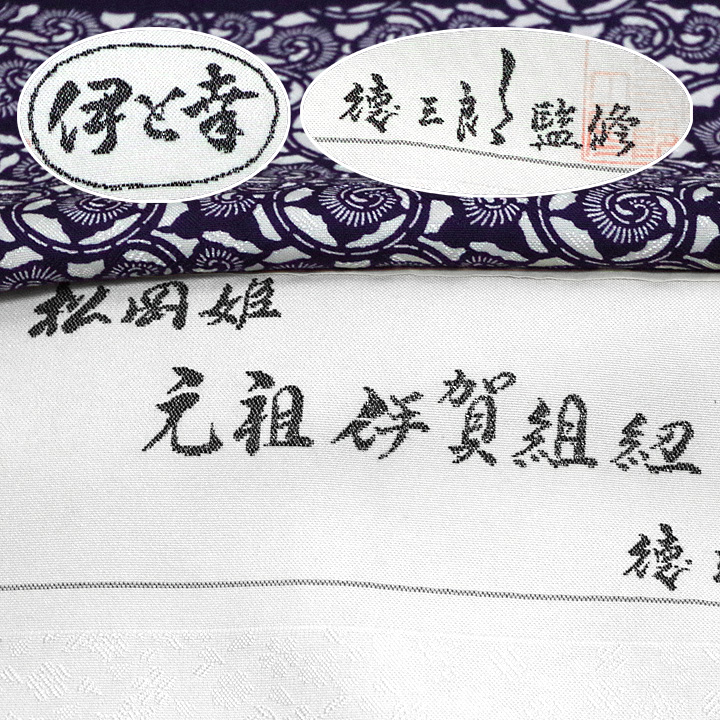 伊と幸
徳三郎監修
松岡姫
元祖伊賀組紐
徳